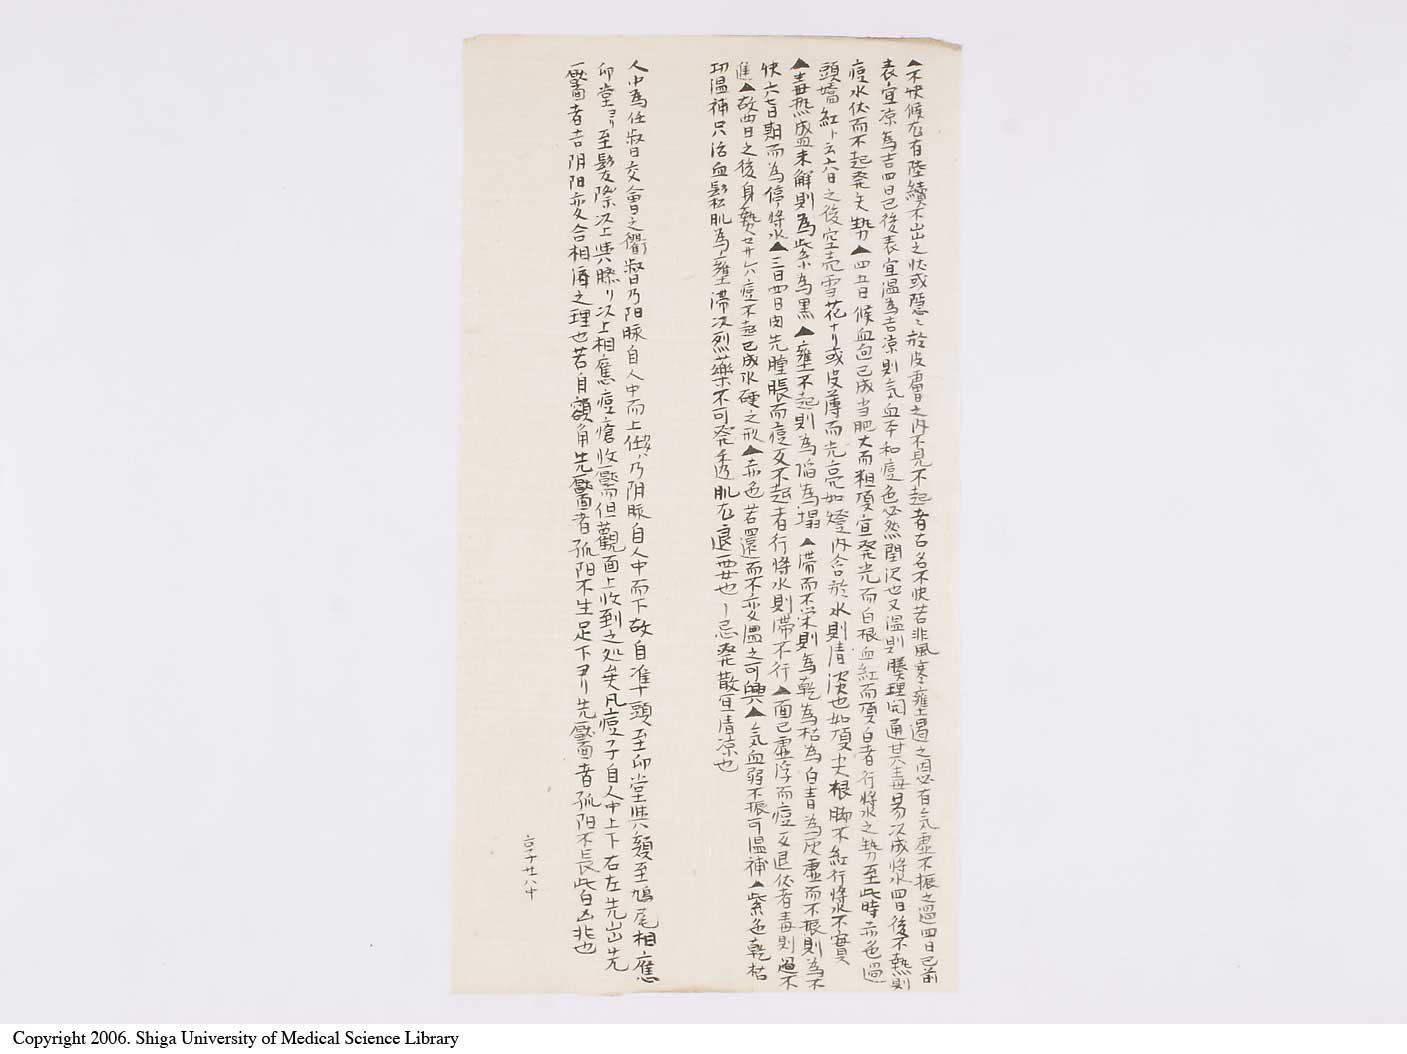 ▲不快候尤有陸續不出之状或隱〻於皮膚之内不見不起者古名不快若非風寒壅遏之因必有気虚不振之過四日已前
表宜凉為吉四日已後表宜温為吉凉則気血不和痘色必然閏沢也又温則腠理開通其毒易次成将水四日後不熱則
痘水伏而不起発矢勢▲四五日候血向已成当肥大而粗頂宜発光而白根血紅而頂白者行将水之勢至此時赤色過
頭嬌紅ト云六日之後空売雪花ナリ或皮薄而光亮如燈内含於水則清淡也如頂尖根脚不紅行将水不實
▲毒熱盛未解則為紫為黒▲壅不起則為陷為塌▲滞而不栄則為乾為枯為白青為灰虚而不振則為不
快六七日期而為停将水▲三日四日内先膧脹而痘反不起者行将水則滞不行▲面已虚浮而痘反退伏者毒則過不
進▲故四日之後身熱廿六痘不起已成水硬之形▲赤色若還而不変温之可興▲気血弱不振可温補▲紫色乾枯
切温補只活血鬆肌為壅滞次烈藥不可発透肌尤退要也ー忌発散宜清凉也
人中為任督交會之衢督乃阳脉自人中而上任乃阴脉自人中而下故自准頭至印堂與頦至鳩尾相應
印堂ヨリ至髪際次上與膝リ次上相應痘瘡收靨但觀面上收到之処矣凡痘子自人中上下右左先出先
靨者吉阴阳変合相済之理也若自額角先靨者孤阳不生足下ヨリ先靨者孤阳不長此白凶兆也